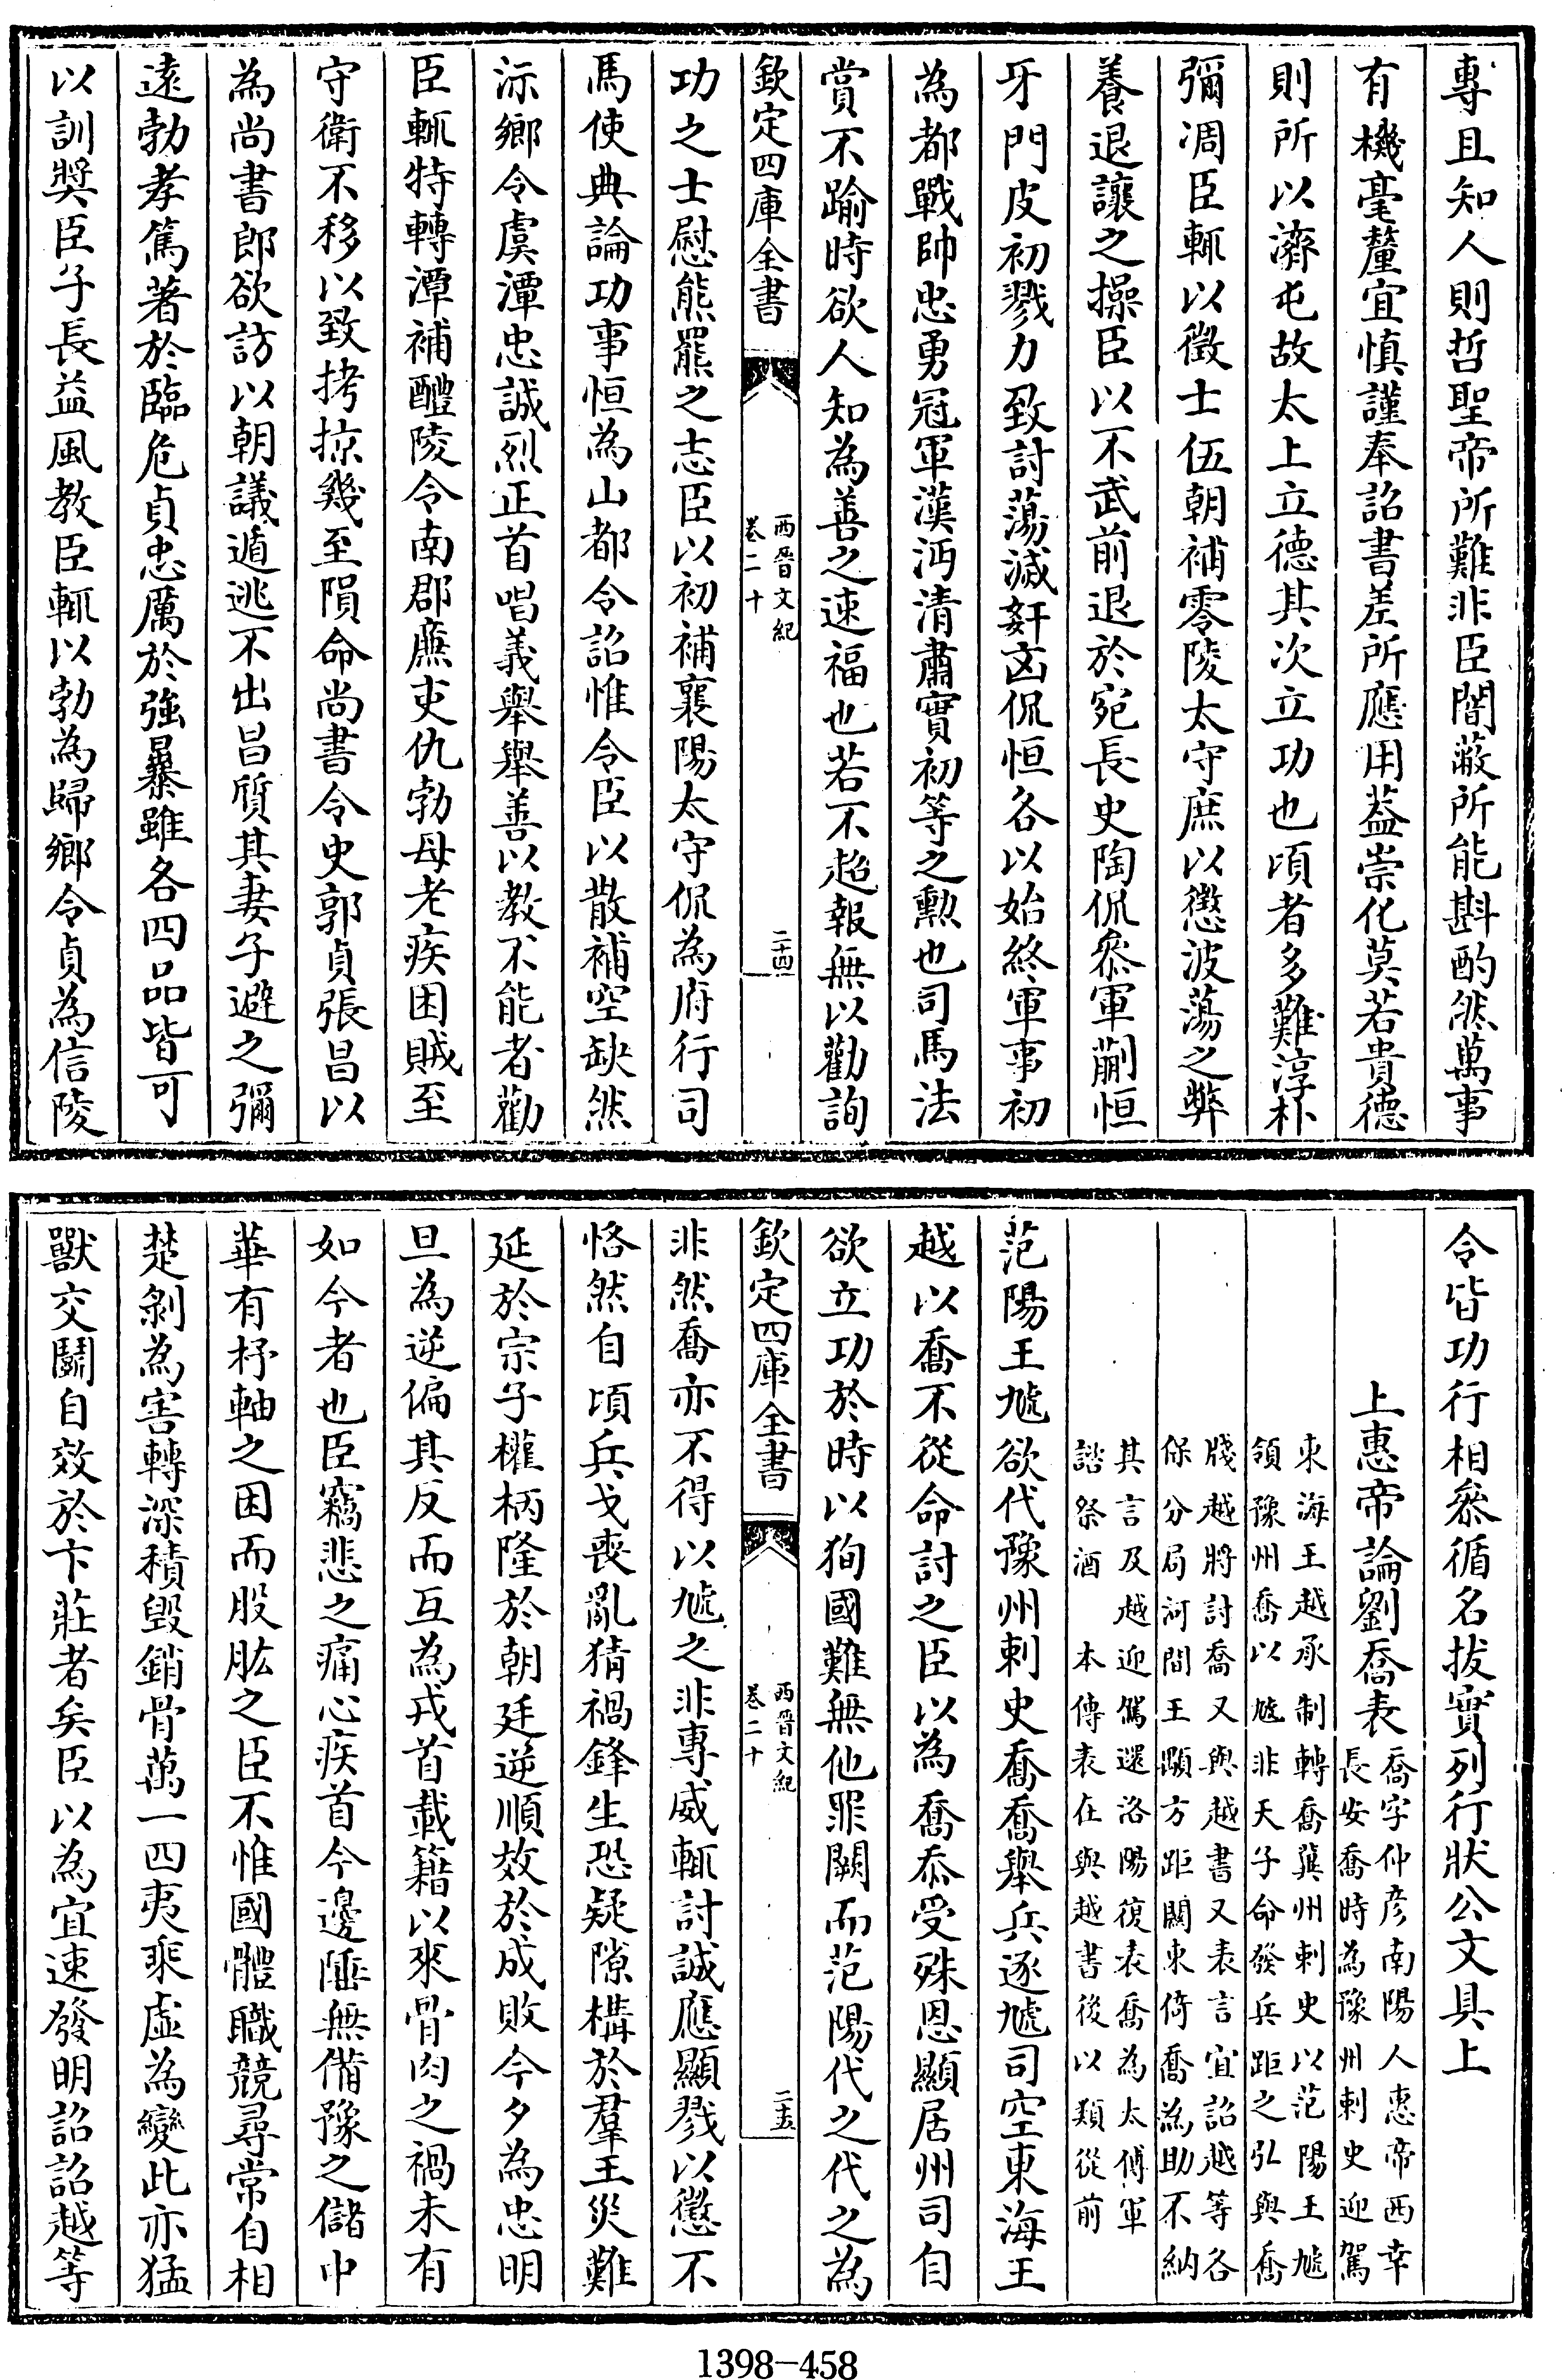 專且知人則哲聖帝所難非臣闇蔽所能斟酌然萬事
有機毫釐宜慎謹奉詔書差所應用葢崇化莫若貴德
則所以濟屯故太上立德其次立功也頃者多難淳朴
彌凋臣輒以徵士伍朝補零陵太守庶以懲波蕩之弊
養退讓之操臣以不武前退於宛長史陶侃叅軍蒯恒
牙門皮初戮力致討蕩滅奸凶侃恒各以始終軍事初
為都戰帥忠勇冠軍漢沔清肅實初等之勲也司馬法
賞不踰時欲人知為善之速福也若不超報無以勸詢
欽定四庫全書
西晉文紀
卷二十
二十四
功之士慰熊羆之志臣以初補襄陽太守侃為府行司
馬使典論功事恒為山都令詔惟令臣以散補空缺然
沶鄉令虞潭忠誠烈正首唱義舉舉善以教不能者勸
臣輒特轉潭補醴陵令南郡廉吏仇勃母老疾困賊至
守衛不移以致拷掠幾至隕命尚書令史郭貞張昌以
為尚書郎欲訪以朝議遁逃不出昌質其妻子避之彌
遠勃孝篤著於臨危貞忠厲於強暴雖各四品皆可
以訓奬臣子長益風教臣輒以勃為歸鄉令貞為信陵
令皆功行相叅循名拔實列行狀公文具上
上惠帝論劉喬表
喬字仲彦南陽人惠帝西幸
長安喬時為豫州刺史迎駕
東海王越承制轉喬冀州刺史以范陽王虓
領豫州喬以虓非天子命發兵距之弘與喬
牋越將討喬又與越書又表言宜詔越等各
保分局河間王顒方距關東倚喬為助不納
其言及越迎駕還洛陽復表喬為太傅軍
諮祭酒 本傳表在與越書後以類從前
范陽王虓欲代豫州刺史喬喬舉兵逐虓司空東海王
越以喬不從命討之臣以為喬忝受殊恩顯居州司自
欲立功於時以狥國難無他罪闕而范陽代之代之為
欽定四庫全書
西晉文紀
卷二十
二十五
非然喬亦不得以虓之非專威輒討誠應顯戮以懲不
恪然自頃兵戈喪亂猜禍鋒生恐疑隙構於羣王災難
延於宗子權柄隆於朝廷逆順效於成敗今夕為忠明
旦為逆偏其反而互為戎首載籍以來骨肉之禍未有
如今者也臣竊悲之痛心疾首今邊陲無備豫之儲中
華有杼軸之困而股肱之臣不惟國體職競尋常自相
楚剝為害轉深積毀銷骨萬一四夷乘虛為變此亦猛
獸交鬭自效於卞莊者矣臣以為宜速發明詔詔越等
1398-458